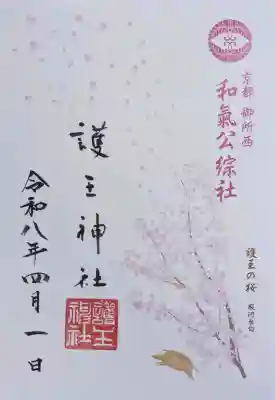 京都 御所西
和氣公綜社
護王の桜
護王神社
護王
神社
令和八年四月一日